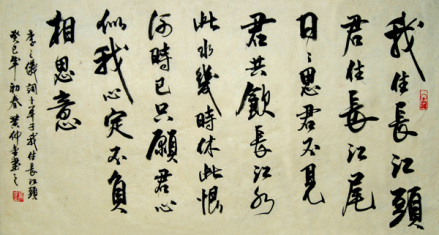 我住長江頭
君住長江尾
日日思君不見
君共飲長江水
此水幾時休此恨
何時已只願君心
似我心定不負
相思意
李之儀詞卜算子我住長江頭
癸巳年初春